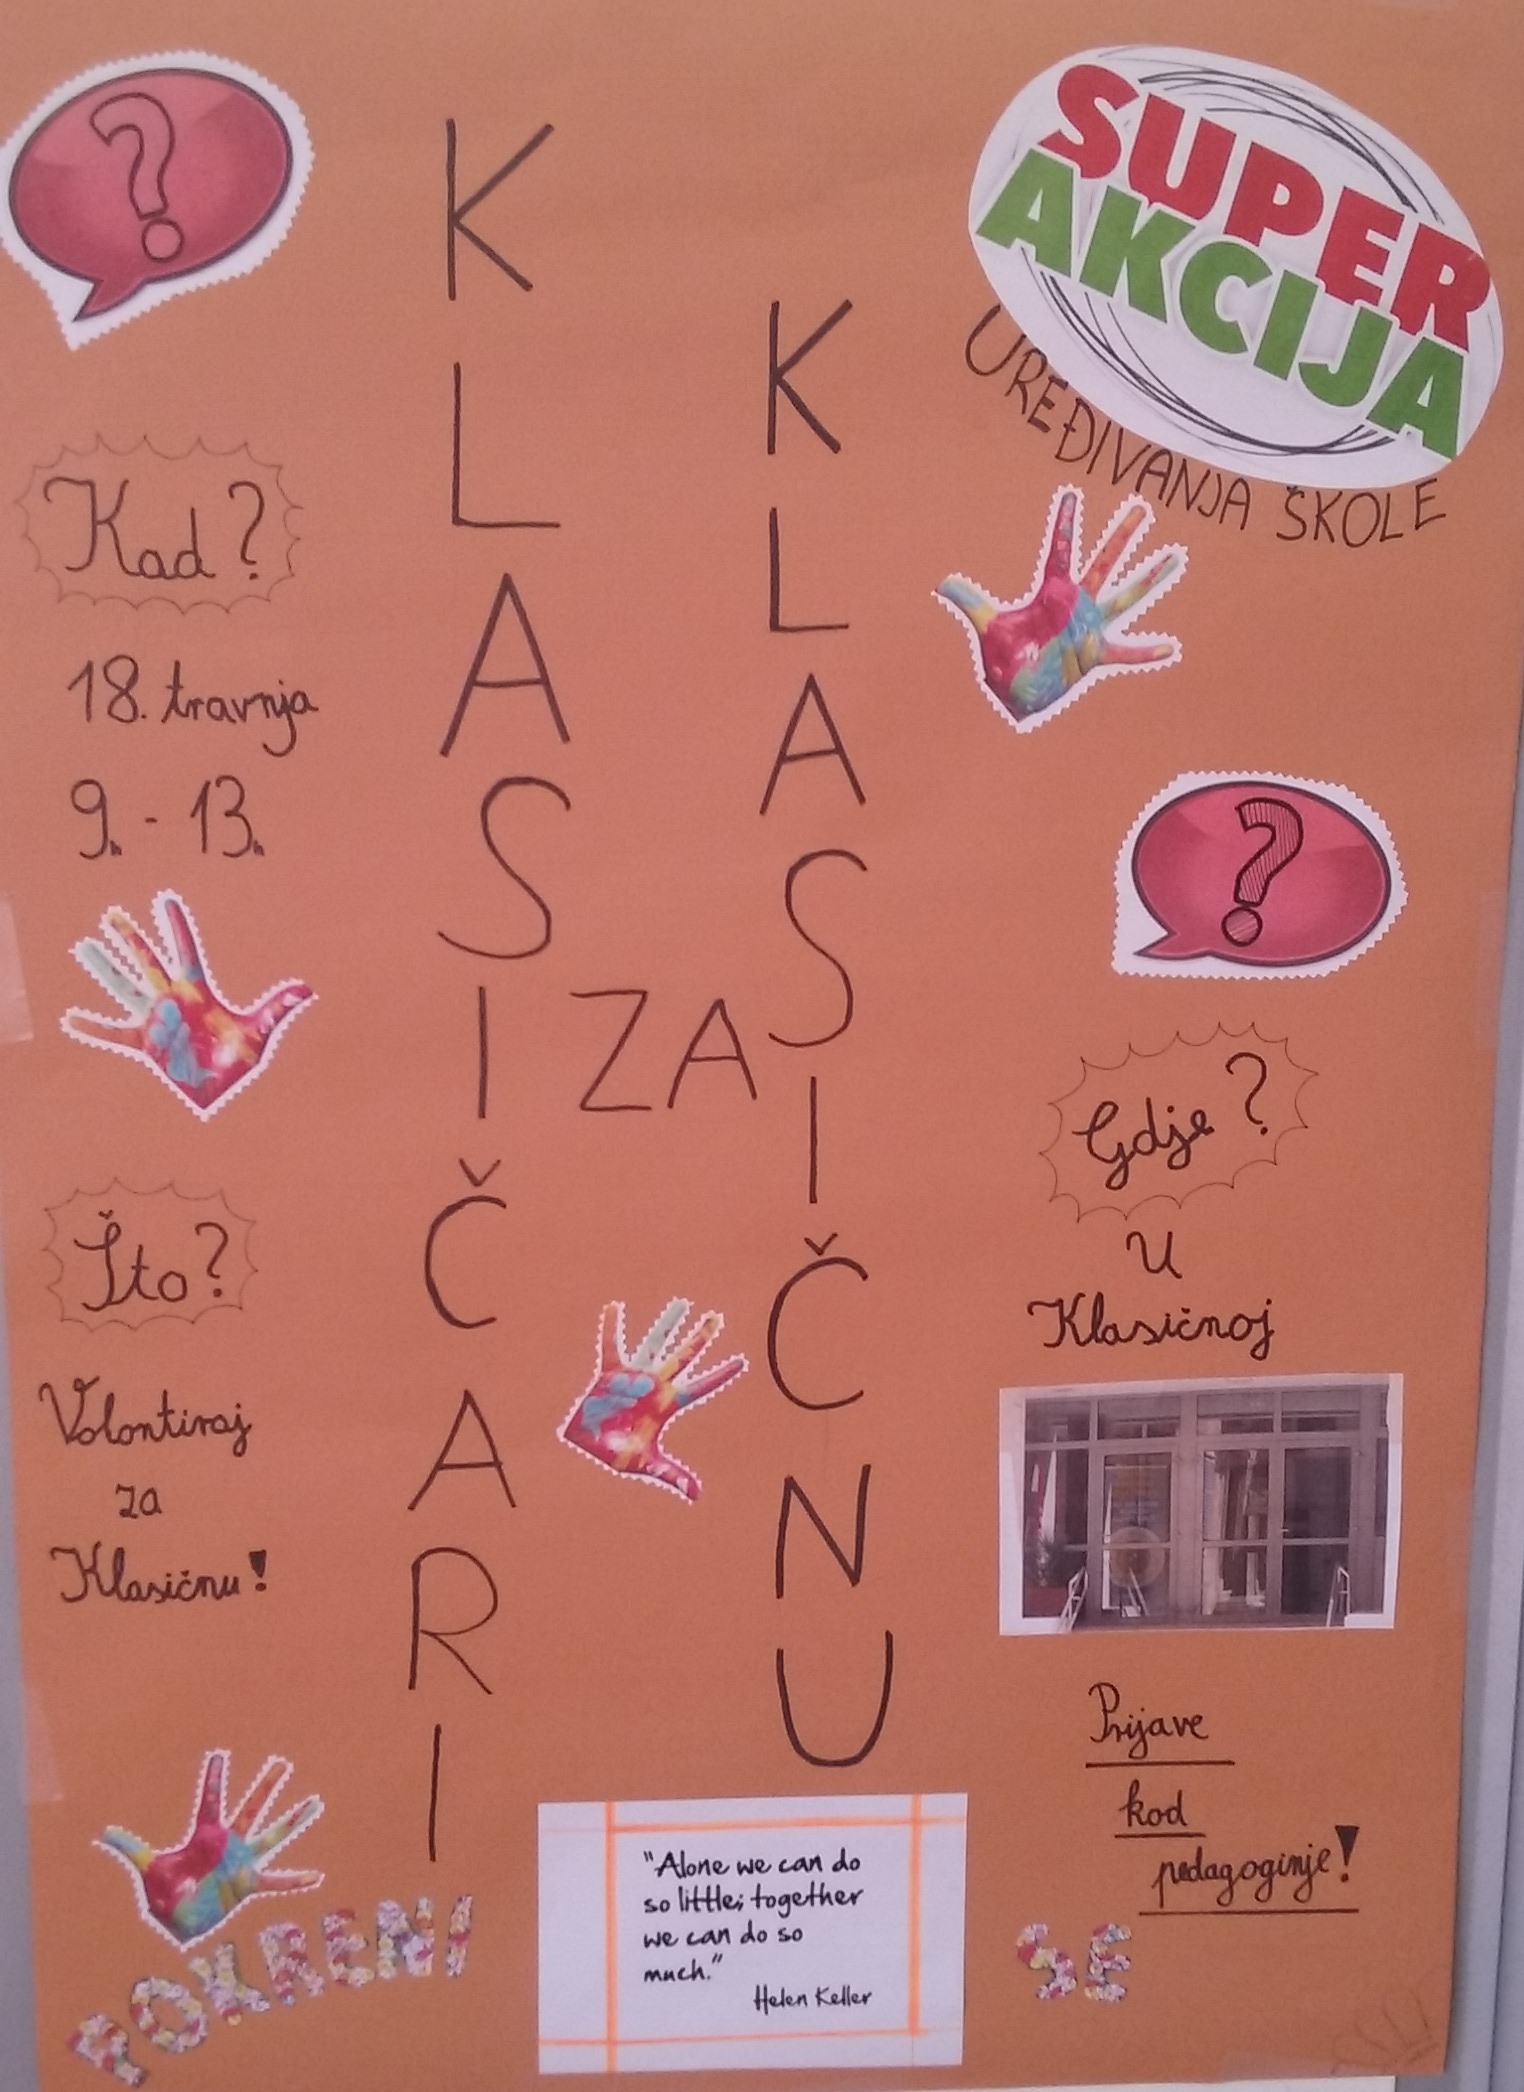 SUPER
AKCIJA
UREĐIVANJA ŠKOLE
KLASIČARI
ZA
KLASIČNU
?
Kad?
18. travnja
9h - 13h
Što?
Volontiraj
za
Klasičnu!
?
Gdje?
U
Klasičnoj
Prijave
kod
pedagoginje!
"Alone we can do
so little; together
we can do so
much."
Helen Keller
POKRENI
SE